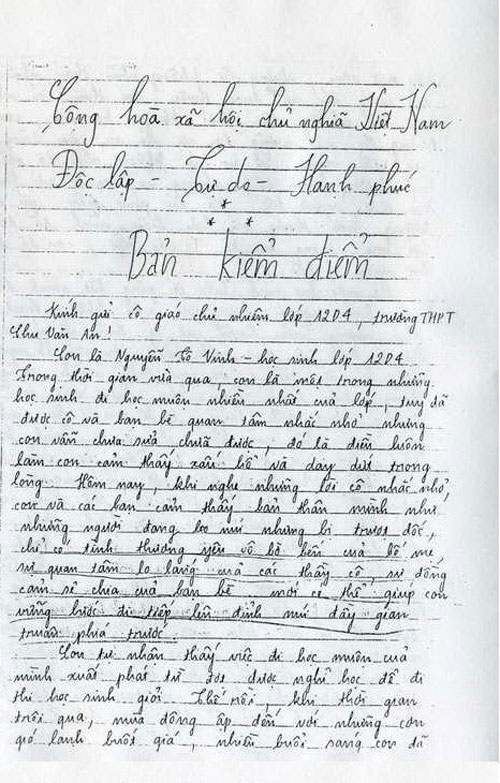 Cộng hoà xã hội chủ nghiã Việt Nam
Độc lập - Tự do - Hanh phúc
*
* *
Bản kiểm điểm
Kính gửi cô giáo chủ nhiệm lớp 12D4, trường THPT
Chu Văn An!
Con là Nguyễn Tô Vinh - học sinh lớp 12D4
Trong thời gian vừa qua, con là một trong những
học sinh đi học muộn nhiều nhất của lớp, tuy đã
được cô và bạn bè quan tâm nhắc nhở nhưng
con vẫn chưa sửa chữa được, đó là điều luôn
làm con cảm thấy xấu hổ và day dứt trong
lòng. Hôm nay, khi nghe những lời cô nhắc nhở,
con và các bạn cảm thấy bản thân mình như
những người đang leo núi nhưng bị trượt dốc,
chỉ có tình thương yêu vô bờ bến của bố mẹ
sự quan tâm lo lắng của các thầy cô, sự đồng
cảm sẻ chia của bạn bè mới có thể giúp con
vững bước đi tiếp lên đỉnh núi đầy gian
truân phía trước.
Con tự nhận thấy việc đi học muộn của
mình xuất phát từ đợt được nghỉ học để đi
thi học sinh giỏi. Thế rồi, khi thời gian
trôi qua, mùa đông ập đến với những cơn
gió lạnh buốt giá, nhiều buổi sáng con đã